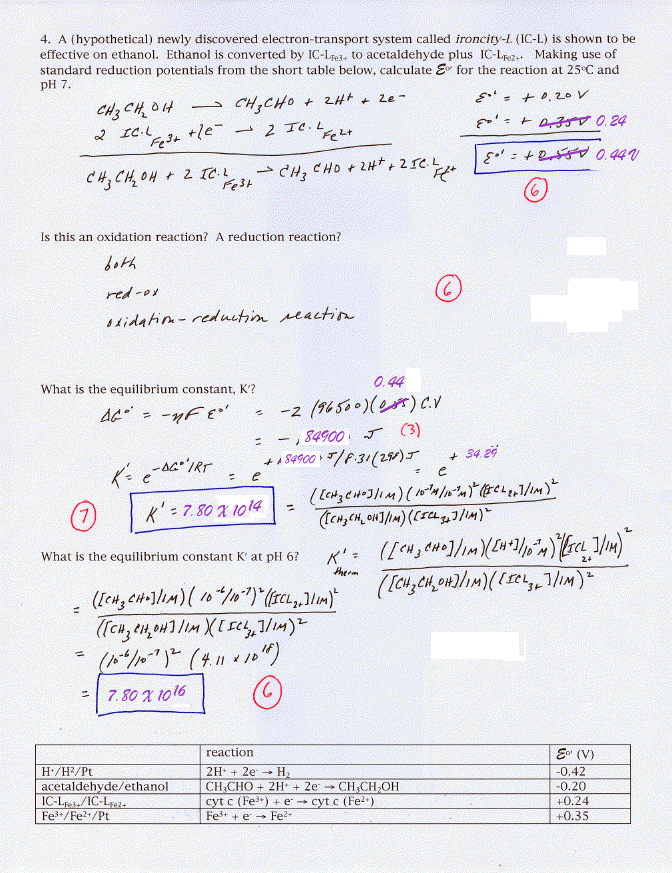 4. A (hypothetical) newly discovered electron-transport system called ironcity-L (IC-L) is shown to be
effective on ethanol. Ethanol is converted by IC-LFe3+ to acetaldehyde plus IC-LFe2+. Making use of
standard reduction potentials from the short table below, calculate ℰo' for the reaction at 25°C and
pH 7.
CH3CH2OH → CH3CHO + 2H+ + 2e- ℰo' = + 0.20 V
2 IC-LFe3+ + 2e- → 2 IC-LFe2+ ℰo' = + 0.35V 0.24
CH3CH2OH + 2 IC-LFe3+ → CH3CHO + 2H+ + 2 IC-LFe2+ ℰo' = + 0.55V 0.44V
6
Is this an oxidation reaction? A reduction reaction?
both
red-ox
oxidation-reduction reaction
6
What is the equilibrium constant, K'?
0.44
ΔGo' = -nFℰo' = -2 (96500)(0.55) C.V
= -84900 J (3)
K' = e-ΔGo'/RT = e+84900 J/8.31(298)J = e+34.29
7
K' = 7.80 X 1014 = ([CH3CHO]/1M)(10-7M/10-7M)2([ICL2+]/1M)2
([CH3CH2OH]/1M)([ICL3+]/1M)2
What is the equilibrium constant K' at pH 6?
K'therm = ([CH3CHO]/1M)([H+]/10-7M)2([ICL2+]/1M)2
([CH3CH2OH]/1M)([ICL3+]/1M)2
= ([CH3CHO]/1M)(10-6/10-7)2([ICL2+]/1M)2
([CH3CH2OH]/1M)([ICL3+]/1M)2
= (10-6/10-7)2 (4.11 x 1018)
= 7.80 X 1016
6
reaction ℰo' (V)
H+/H2/Pt 2H+ + 2e- → H2 -0.42
acetaldehyde/ethanol CH3CHO + 2H+ + 2e- → CH3CH2OH -0.20
IC-LFe3+/IC-LFe2+ cyt c (Fe3+) + e- → cyt c (Fe2+) +0.24
Fe3+/Fe2+/Pt Fe3+ + e- → Fe2+ +0.35